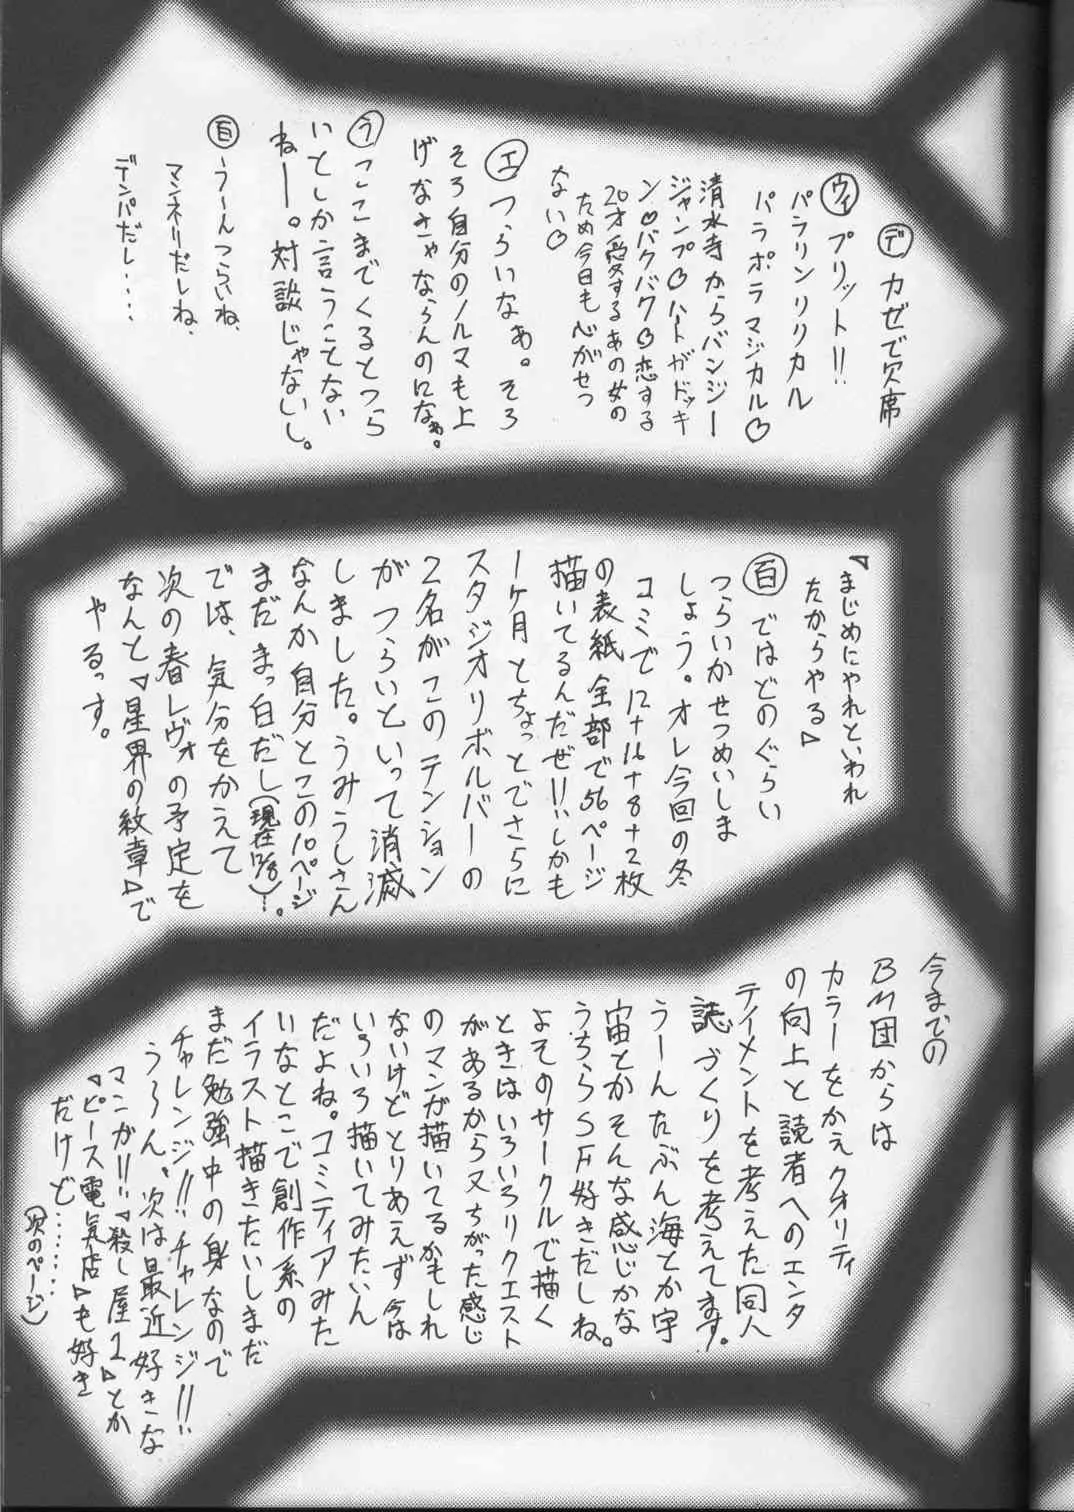 デ カゼで欠席
ウィ プリット!!
パラリンリリカル
パラポラマジカル♡
清水寺からバンジー
ジャンプ♡ハートがドッキ
ン♡バクバク♡恋する
20才愛するあの女の
ため今日も心がせつ
ない♡
エ つらいなぁ。そろ
そろ自分のノルマも上
げなきゃならんのになぁ。
う ここまでくるとつら
いとしか言うことない
ねー。対談じゃないし。
百 うーんつらいね、
マンネリだしね、
デンパだし‥‥
◁まじめにやれといわれ
たからやる▷
百 ではどのぐらい
つらいかせつめいしま
しょう。オレ今回の冬
コミで12+16+8+2枚
の表紙全部で56ページ
描いてるんだぜ!!しかも
1ヶ月とちょっとでさらに
スタジオリボルバーの
2名がこのテンション
がつらいといって消滅
しました。うみうしさん
なんか自分とこの10ページ
まだまっ白だし(現在12/8)!。
では、気分をかえて
次の春レヴォの予定を
なんと◁星界の紋章▷で
やるっす。
今までの
BM団からは
カラーをかえクオリティ
の向上と読者へのエンタ
ティメントを考えた同人
誌づくりを考えてます。
うーんたぶん海とか宇
宙とかそんな感じかな
うちらSF好きだしね。
よそのサークルで描く
ときはいろいろリクエスト
があるから又ちがった感じ
のマンガ描いてるかもしれ
ないけどとりあえず今は
いろいろ描いてみたいん
だよね。コミティアみた
いなとこで創作系の
イラスト描きたいしまだ
まだ勉強中の身なので
チャレンジ!!チャレンジ!!
う〜ん、次は最近好きな
マンガ!!◁殺し屋1▷とか
◁ピース電気店▷も好き
だけど‥‥‥
(次のページ)